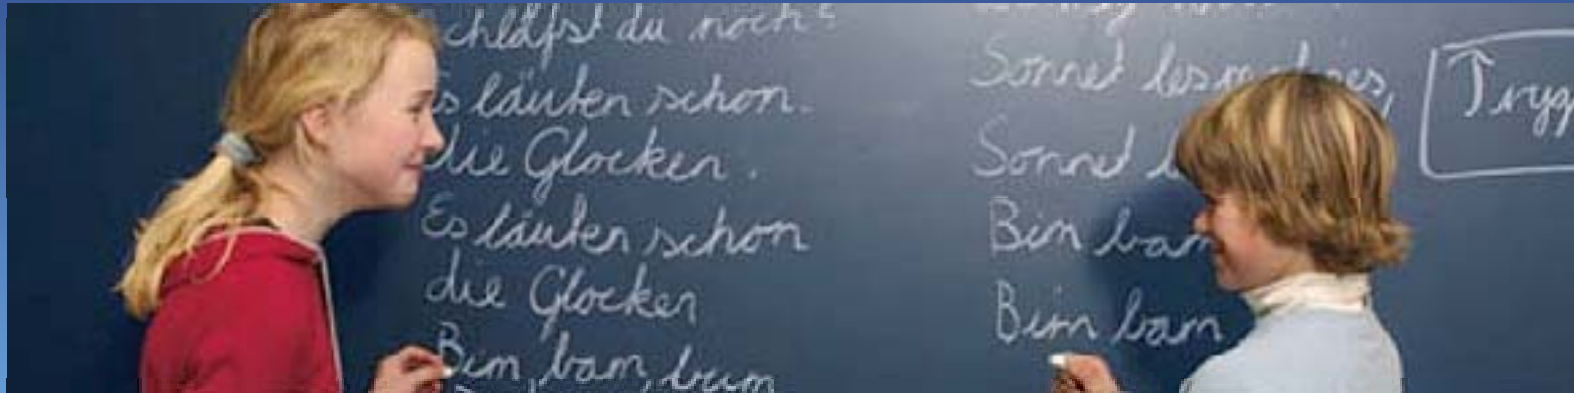 chläfst du noch?
s läuten schon.
die Glocken.
Es läuten schon
die Glocken
Bim, bam, bum
Sonnez les
Sonnez
Bim bam
Bim bam
Tryg